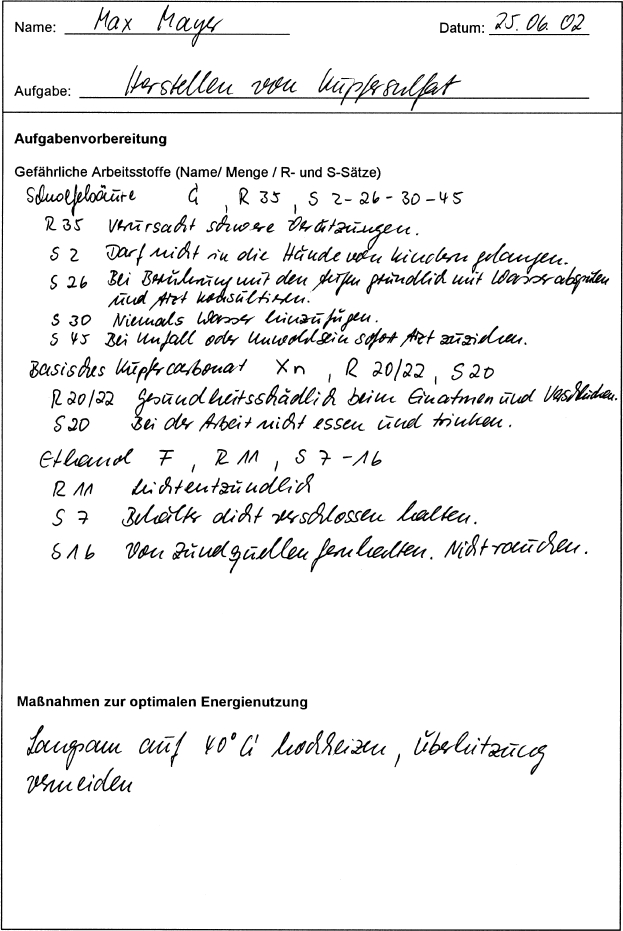 Name: Max Mayer Datum: 25.06.02
Aufgabe: Herstellen von Kupfersulfat
Aufgabenvorbereitung
Gefährliche Arbeitsstoffe (Name/ Menge / R- und S-Sätze)
Schwefelsäure C, R 35, S 2-26-30-45
R 35 Verursacht schwere Verätzungen.
S 2 Darf nicht in die Hände von Kindern gelangen.
S 26 Bei Berührung mit den Augen gründlich mit Wasser abspülen
und Arzt konsultieren.
S 30 Niemals Wasser hinzufügen.
S 45 Bei Unfall oder Unwohlsein sofort Arzt zuziehen.
Basisches Kupfercarbonat Xn, R 20/22, S 20
R 20/22 Gesundheitsschädlich beim Einatmen und Verschlucken.
S 20 Bei der Arbeit nicht essen und trinken.
Ethanol F, R 11, S 7-16
R 11 Leichtentzündlich
S 7 Behälter dicht verschlossen halten.
S 16 Von Zündquellen fernhalten. Nicht rauchen.
Maßnahmen zur optimalen Energienutzung
Langsam auf 40°C hochheizen, Überhitzung
vermeiden